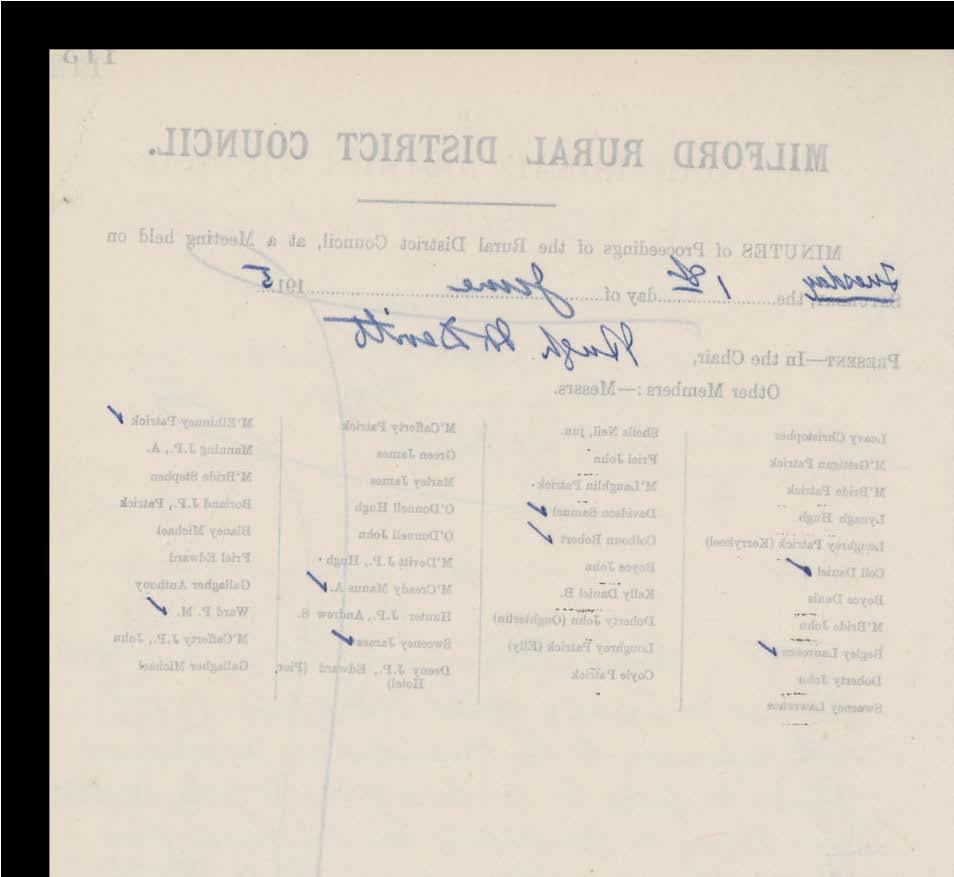 MILFORD RURAL DISTRICT COUNCIL.
MINUTES of Proceedings of the Rural District Council, at a Meeting held on
Tuesday
SATURDAY, the 1st day of June 1915
PRESENT—In the Chair, Hugh McDevitt
Other Members:—Messrs.
Leavy Christopher
M'Gettigan Patrick
M'Bride Patrick
Lynagh Hugh
Loughrey Patrick (Kerrykeel)
Coll Daniel ✓
Boyce Denis
M'Bride John
Begley Laurence ✓
Doherty John
Sweeney Lawrence
Sheils Neil, jun.
Friel John
M'Laughlin Patrick
Davidson Samuel ✓
Colhoun Robert ✓
Boyce John
Kelly Daniel B.
Doherty John (Oughterlin)
Loughrey Patrick (Elly)
Coyle Patrick
M'Cafferty Patrick
Green James
Marley James
O'Donnell Hugh
O'Donnell John
M'Devitt J.P., Hugh
M'Cready Manus A. ✓
Hunter J.P., Andrew S.
Sweeney James ✓
Deeny J.P., Edward (Pier,
Hotel)
M'Elhinney Patrick ✓
Manning J.P., A.
M'Bride Stephen
Borland J.P., Patrick
Blaney Michael
Friel Edward
Gallagher Anthony
Ward P. M. ✓
M'Cafferty J.P., John
Gallagher Michael